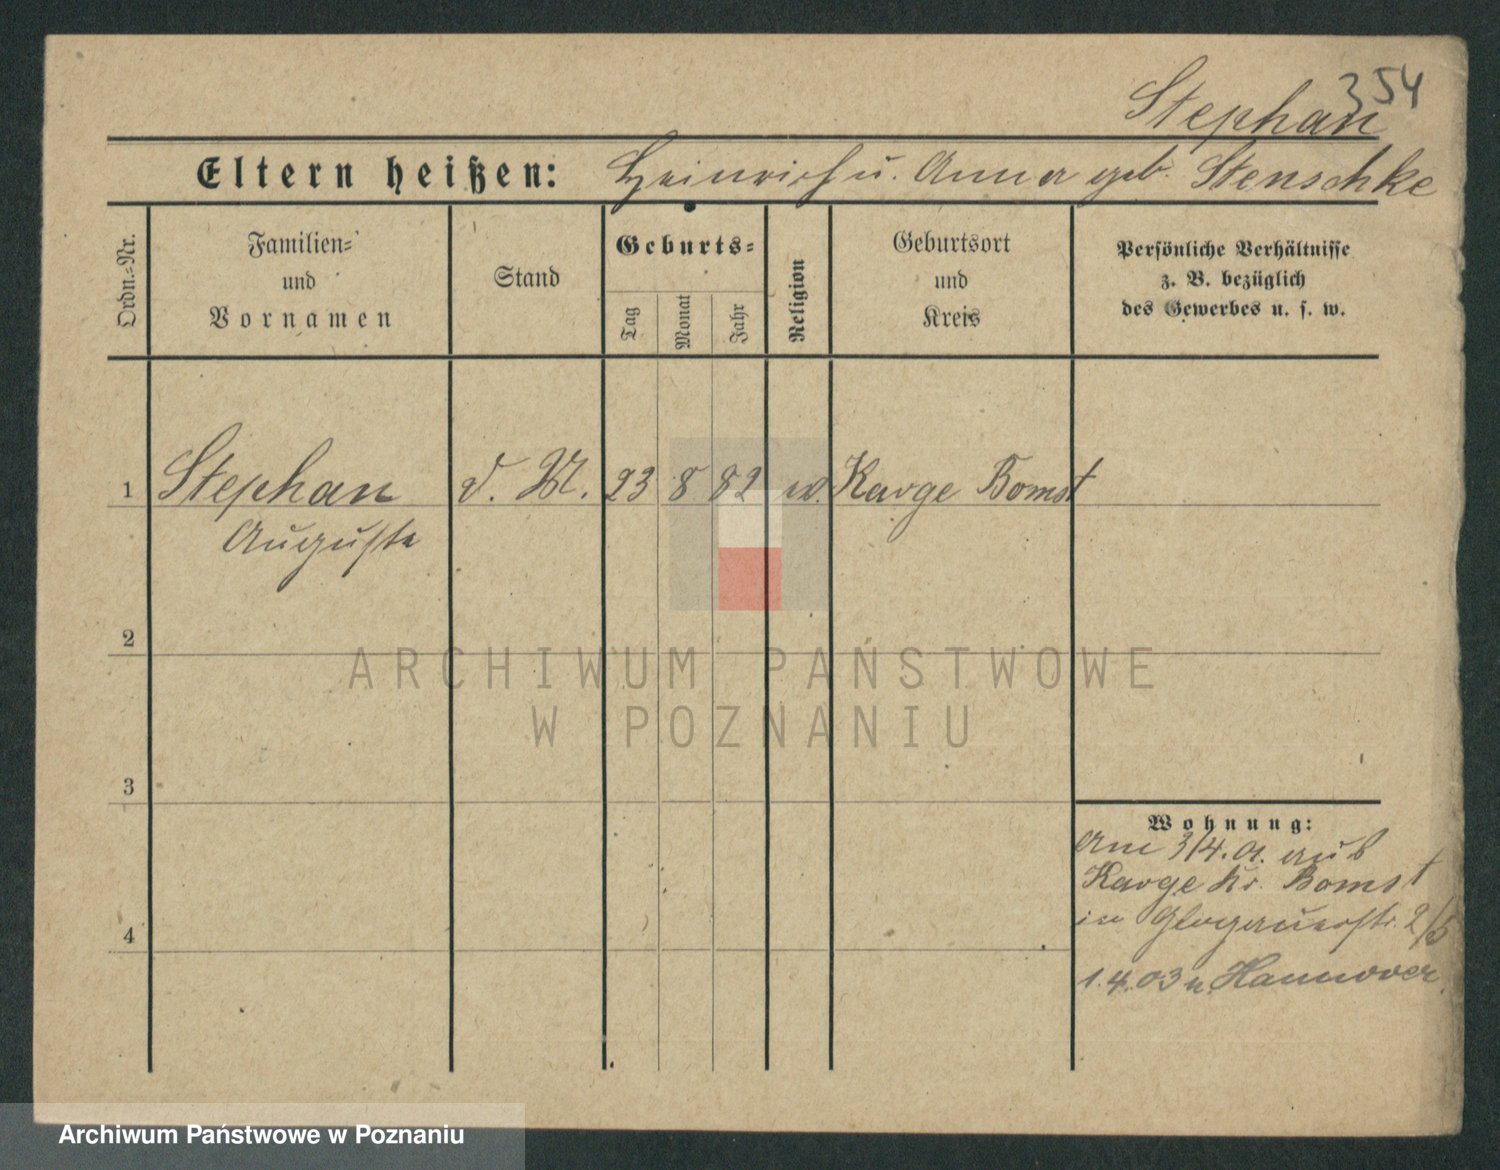 354
Stephan
Eltern heißen: Heinrich u. Anna geb. Stenschke
Ordn.-Nr.
Familien-
und
Vornamen
Stand
Geburts-
Tag
Monat
Jahr
Religion
Geburtsort
und
Kreis
Persönliche Verhältnisse
z. B. bezüglich
des Gewerbes u. s. w.
1 Stephan d. M. 23 8 82 ev. Karge Bomst
Auguste
2
3
4
Wohnung:
Am 3/4. 01. aus
Karge Kr. Bomst
in Glogauerstr. 2/5
1.4.03 n. Hannover.
ARCHIWUM PAŃSTWOWE
W POZNANIU
Archiwum Państwowe w Poznaniu